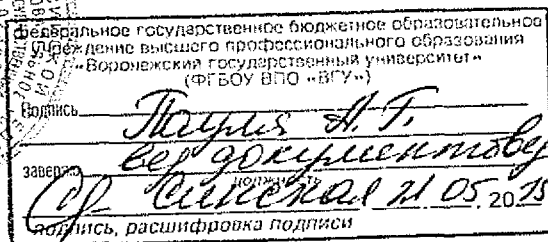 Федеральное государственное бюджетное образовательное
учреждение высшего профессионального образования
«Воронежский государственный университет»
(ФГБОУ ВПО «ВГУ»)
Подпись
заверяю вед документовед
должность
21 05. 2015
подпись, расшифровка подписи